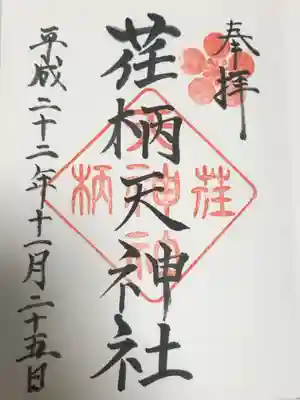 奉拝
荏柄天神社
荏柄天神社
平成二十二年十一月二十五日